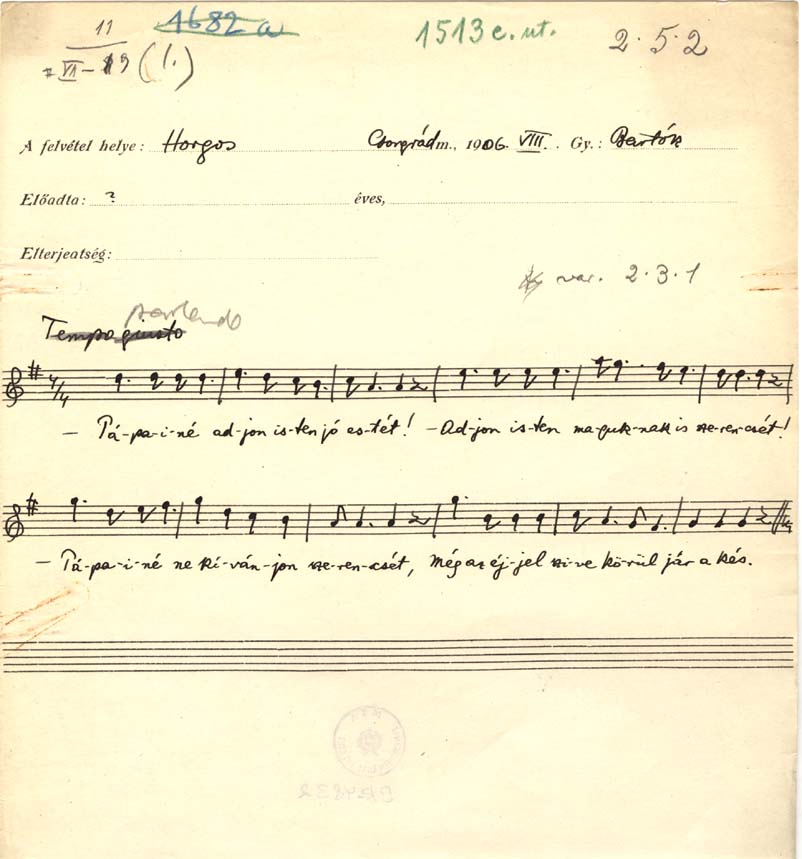 11 1682 a 1513 c. ut. 2.5.2
VI - 19 (1.)
A felvétel helye: Horgos Csongrád m., 1906. VIII. Gy.: Bartók
Előadta: ? éves,
Elterjeatség:
var. 2.3.1
parlando
Tempo giusto
4/4
– Pá-pa-i-né ad-jon is-ten jó es-tét! – Ad-jon is-ten ma-guk-nak is sze-ren-csét!
– Pá-pa-i-né ne kí-ván-jon sze-ren-csét, Még az éj-jel szí-ve körül jár a kés.